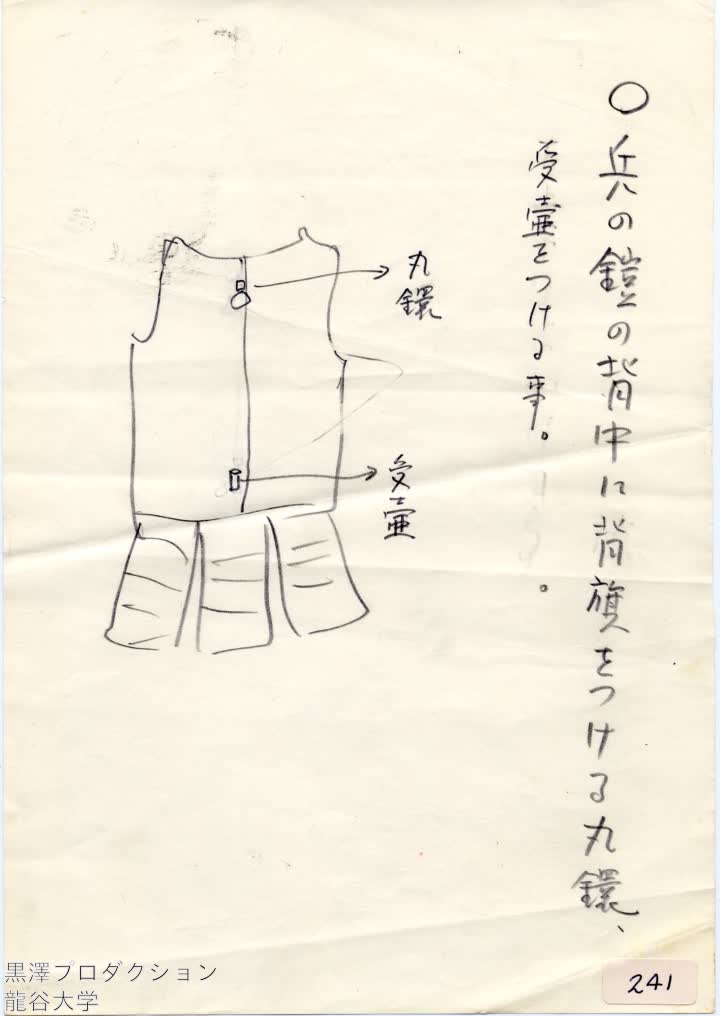 ○兵の鎧の背中に背旗をつける丸鐶、
受壷をつける事。
丸鐶
受壷
241
黒澤プロダクション
龍谷大学